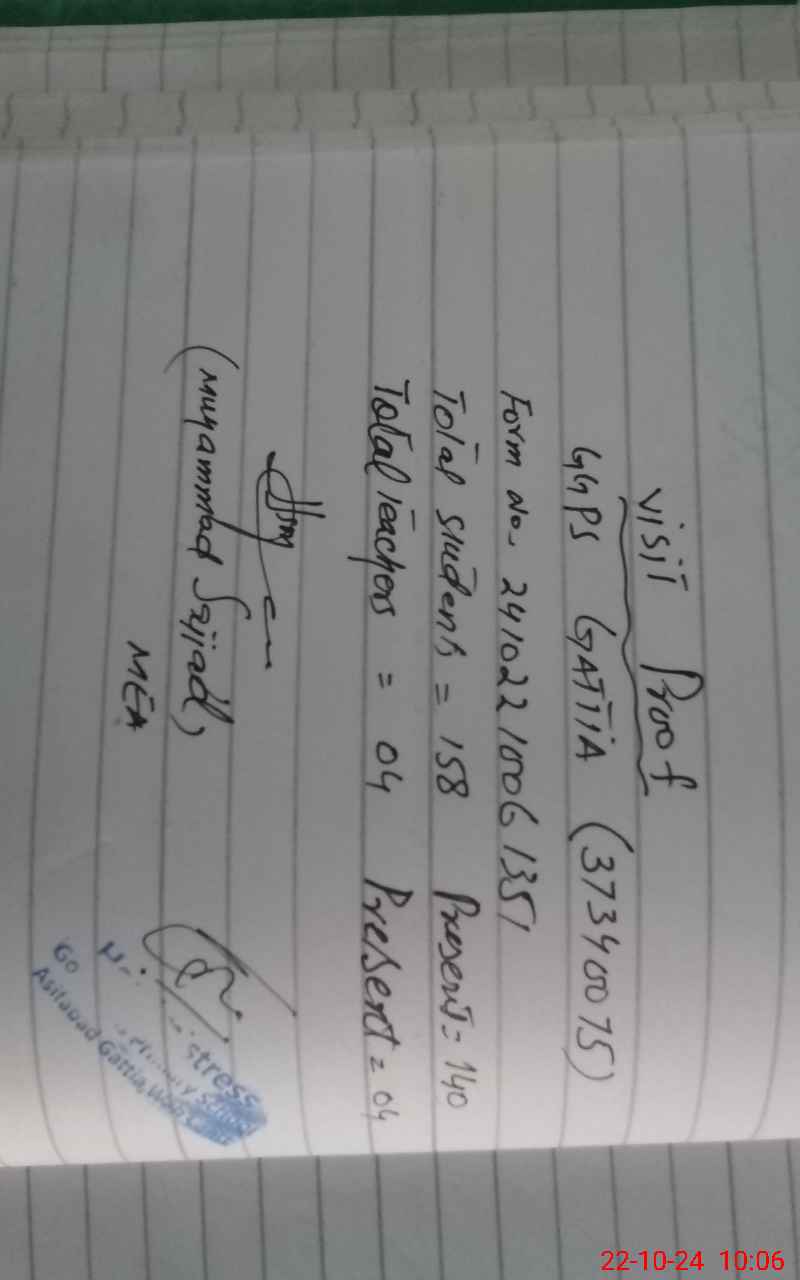 Visit Proof
GGPS GATTIA (37340075)
Form No. 24102210061351
Total students = 158 Present = 140
Total Teachers = 04 Present = 04
(Muhammad Sajjad)
MEA
stress
Asilabad Gattia
22-10-24 10:06